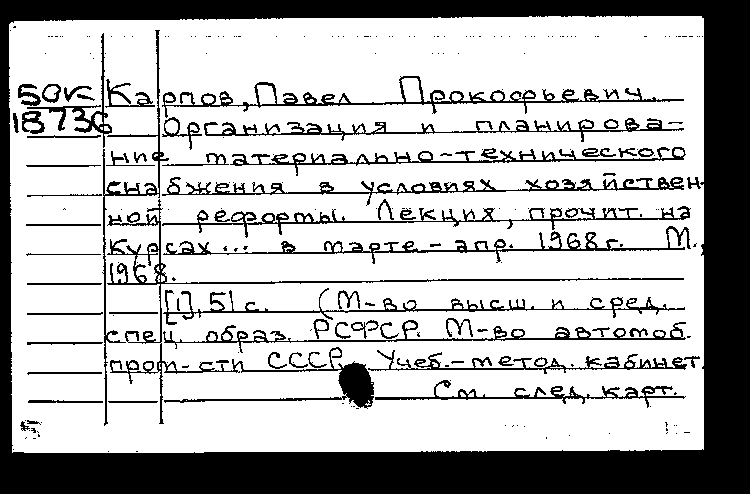 БОК Карпов, Павел Прокофьевич.
18736 Организация и планирова-
ние материально-технического
снабжения в условиях хозяйствен-
ной реформы. Лекция, прочит. на
курсах... в марте-апр. 1968 г. М.,
1968.
[1], 51 с. (М-во высш. и сред.
спец. образ. РСФСР. М-во автомоб.
пром-сти СССР. Учеб.-метод. кабинет.
См. след. карт.
5